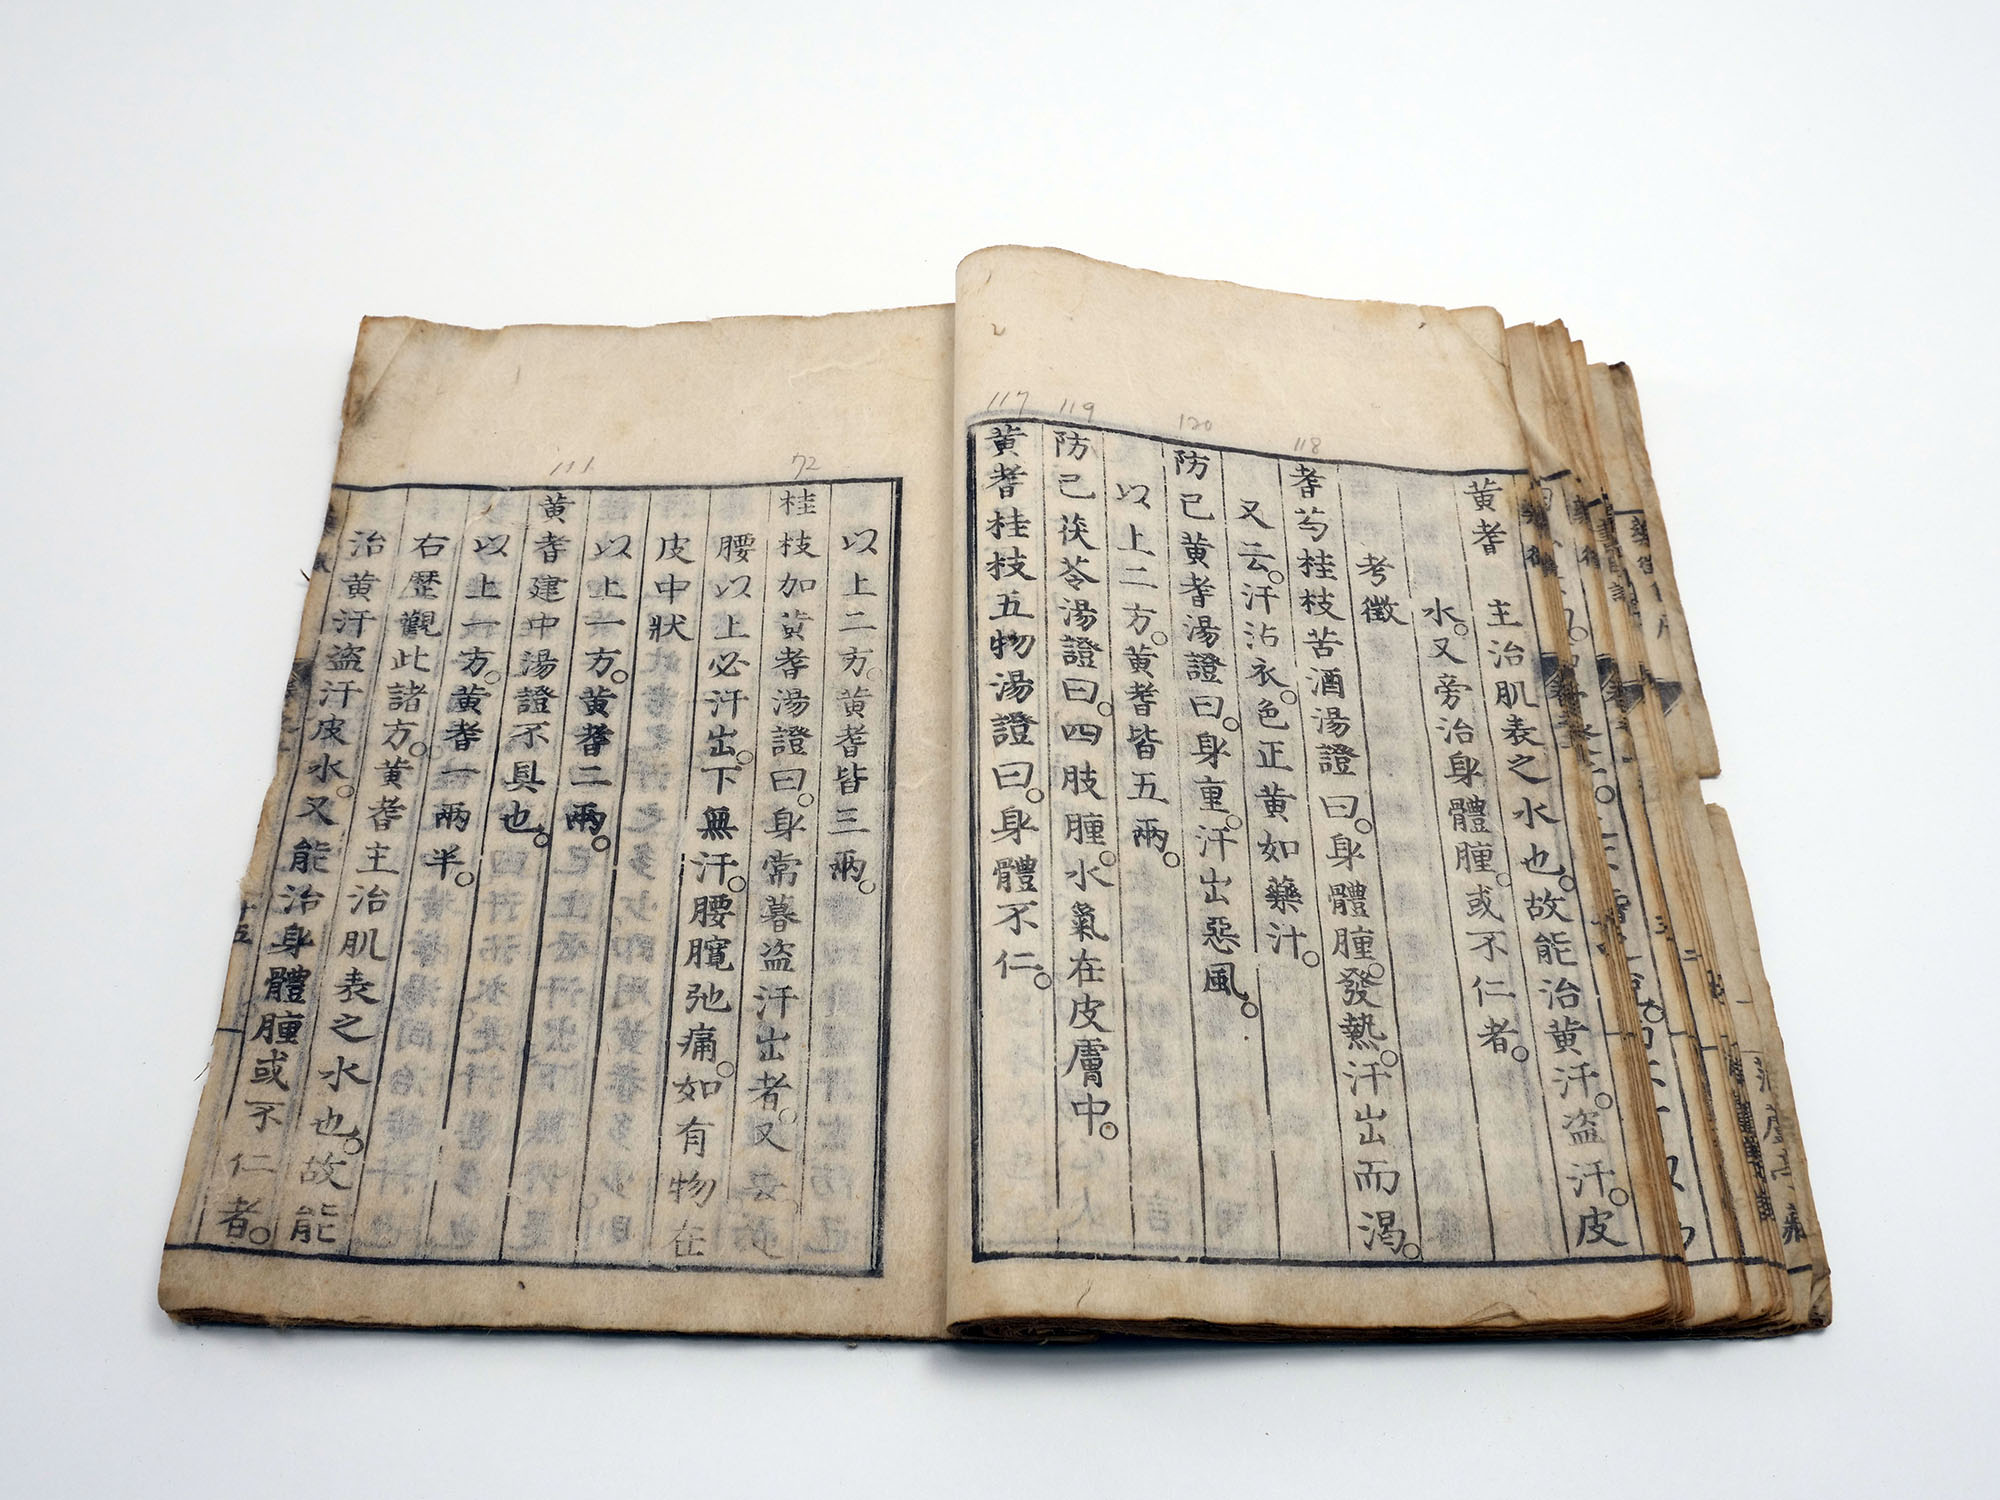 黃耆　主治肌表之水也。故能治黃汗。盜汗。皮
水。又旁治身體腫。或不仁者。
考徵
耆芍桂枝苦酒湯證曰。身體腫。發熱。汗出而渴。
又云。汗沾衣。色正黃如藥汁。
防已黃耆湯證曰。身重。汗出惡風。
以上二方。黃耆皆五兩。
防已茯苓湯證曰。四肢腫。水氣在皮膚中。
黃耆桂枝五物湯證曰。身體不仁。
以上二方。黃耆皆三兩。
桂枝加黃耆湯證曰。身常暮盜汗出者。又
腰以上必汗出。下無汗。腰髖弛痛。如有物在
皮中狀
以上一方。黃耆二兩。
黃耆建中湯證不具也。
以上一方。黃耆一兩半。
右歷觀此諸方。黃耆主治肌表之水也。故能
治黃汗盜汗皮水。又能治身體腫或不仁者。
117
119
120
118
72
111